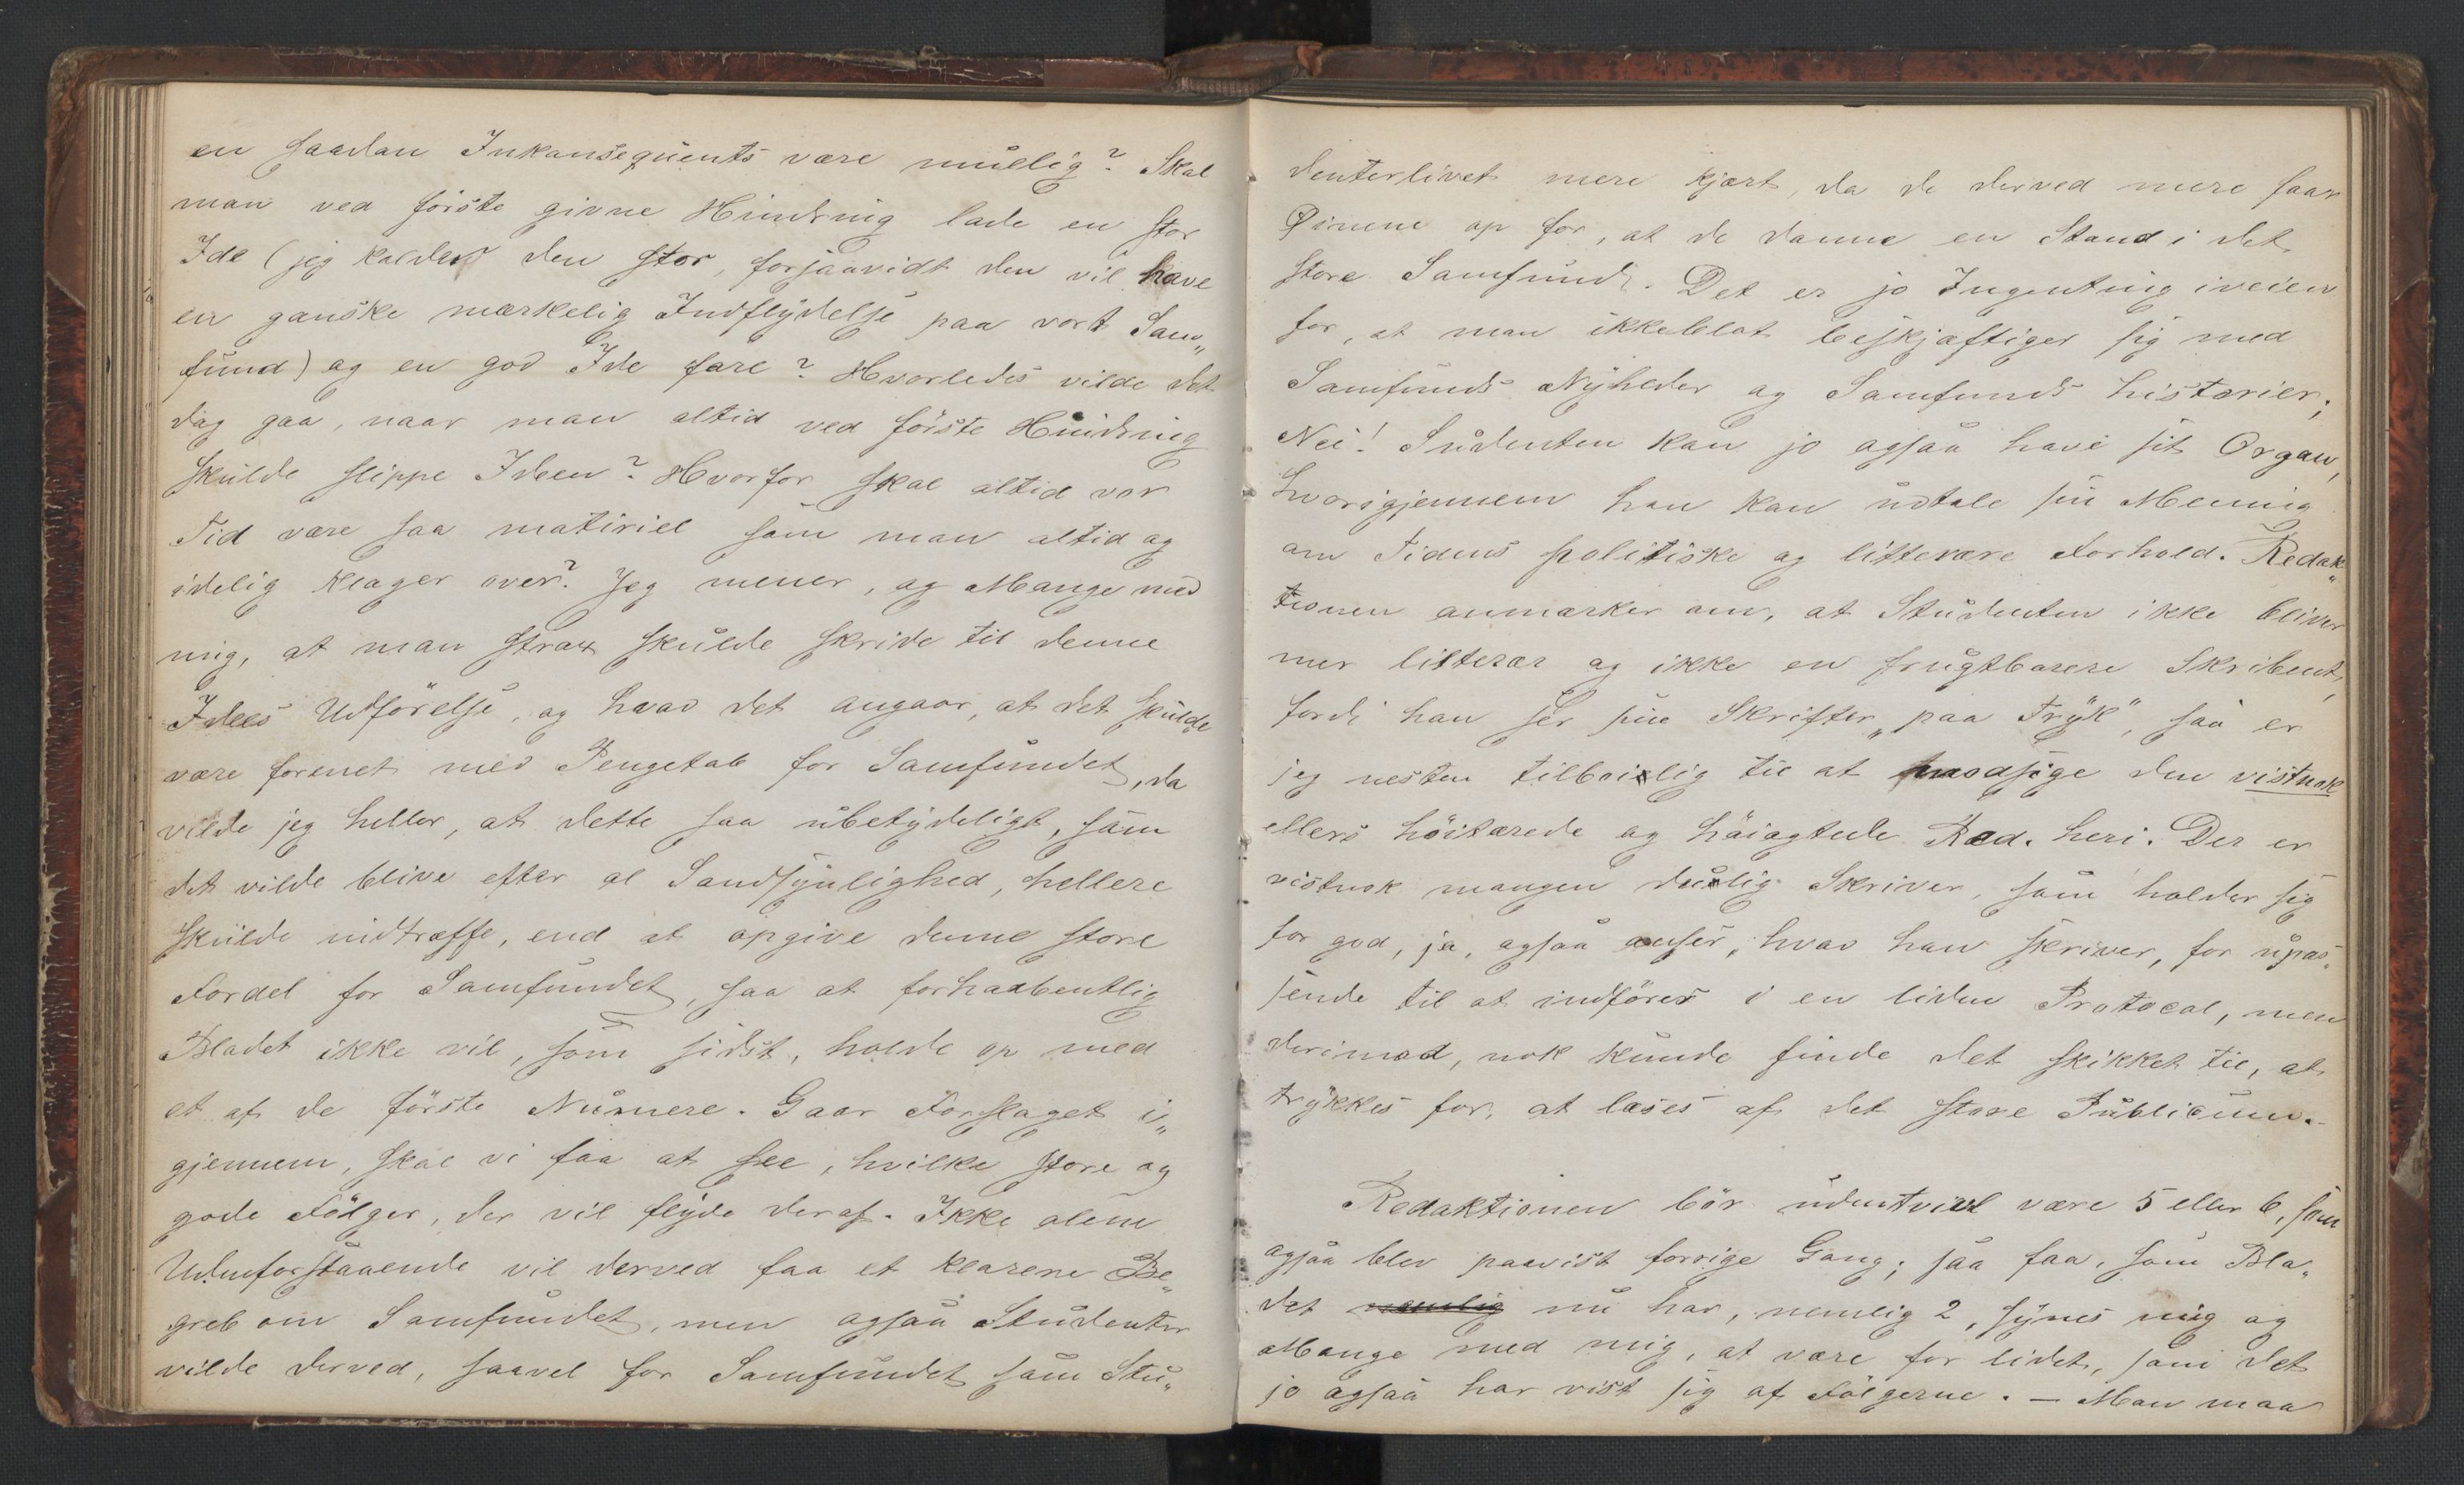 en saadan Inkonsequents være mullig? Skal
man ved förste givne Hindring lade en stor
Ide (jeg kalder den stor, forsaavidt den vil have
en ganske mærkelig Indflydelse paa vort Sam„
fund) og en god Ide fare? Hvorledes vilde det
dog gaa, naar man altid ved förste Hindring
skulde slippe Ideen? Hvorfor skal altid vor
Tid være saa matiriel som man altid og
idelig klager over? Jeg mener, og Mange med
mig, at man strax skulde skride til denne
Idees Udförelse, og hvad det angaar, at det skulde
være forenet med Pengetab for Samfundet, da
vilde jeg heller, at dette saa ubetydeligt, som
det vilde blive efter al Sandsynlighed, hellere
skulde indtræffe, end at opgive denne store
Fordel for Samfundet, saa at forhaabentlig
Bladet ikke vil, som sidst, holde op med
et af de förste Numere. Gaar Forslaget i„
gjennem, skal vi faa at see, hvilke store og
gode Fölger, der vil flyde deraf. Ikke alene
Udenforstaaende vil derved faa et klarere Be„
greb om Samfundet, men ogsaa Studenter
vilde derved, saavel for Samfundet som Stu„
denterlivet mere kjært, da de derved mere faar
Øinene op for, at de danne en Stand i det
store Samfund. Det er jo Ingenting iveien
for, at man ikkeblot beskjæftiger sig med
Samfunds Nyheder og Samfunds historier;
Nei! Studenten kan jo ogsaa have sit Organ,
hvorigjennem han kan udtale sin Mening
om Tidens politiske og litterære Forhold. Redak„
tionen anmærker om, at Studenten ikke bliver
mer litterær og ikke en frugtbarere Skribent,
fordi han ser sine Skrifter „paa Tryk", saa er
jeg nesten tilböielig til at modsige den vistnok
ellers höitærede og höiagtede Red. heri. Der er
vistnok mangen duelig Skriver, som holder sig
for god, ja, ogsaa anser, hvad han skriver, for upas„
sende til at indföres i en liden Protocol, men
derimod, nok kunde finde det skikket til, at
trykkes for, at læses af det store Publicum.
Redaktionen bör udentvivl være 5 eller 6, som
ogsaa blev paavist forrige Gang; saa faa, som Bla„
det nemlig nu har, nemlig 2, synes mig og
Mange med mig, at være for lidet, som det
jo ogsaa har vist sig af Fölgerne. — Man maa